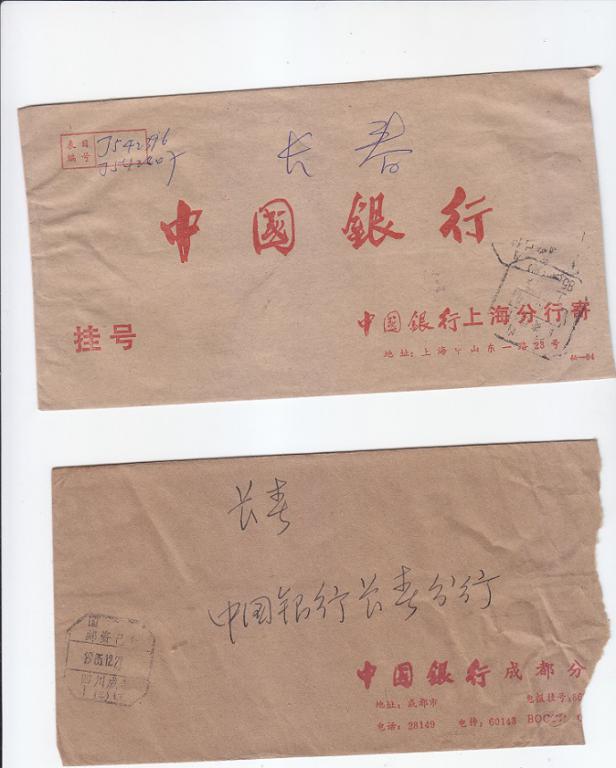 表目
编号
J542796
J542807
长春
中國銀行
挂号
中国銀行上海分行寄
地址:上海中山东一路23号
长春
中国银行长春分行
国
邮资已
四川成
中国銀行成都分
地址:成都市
电报挂号:
电话:28149 电传:60143 BOC